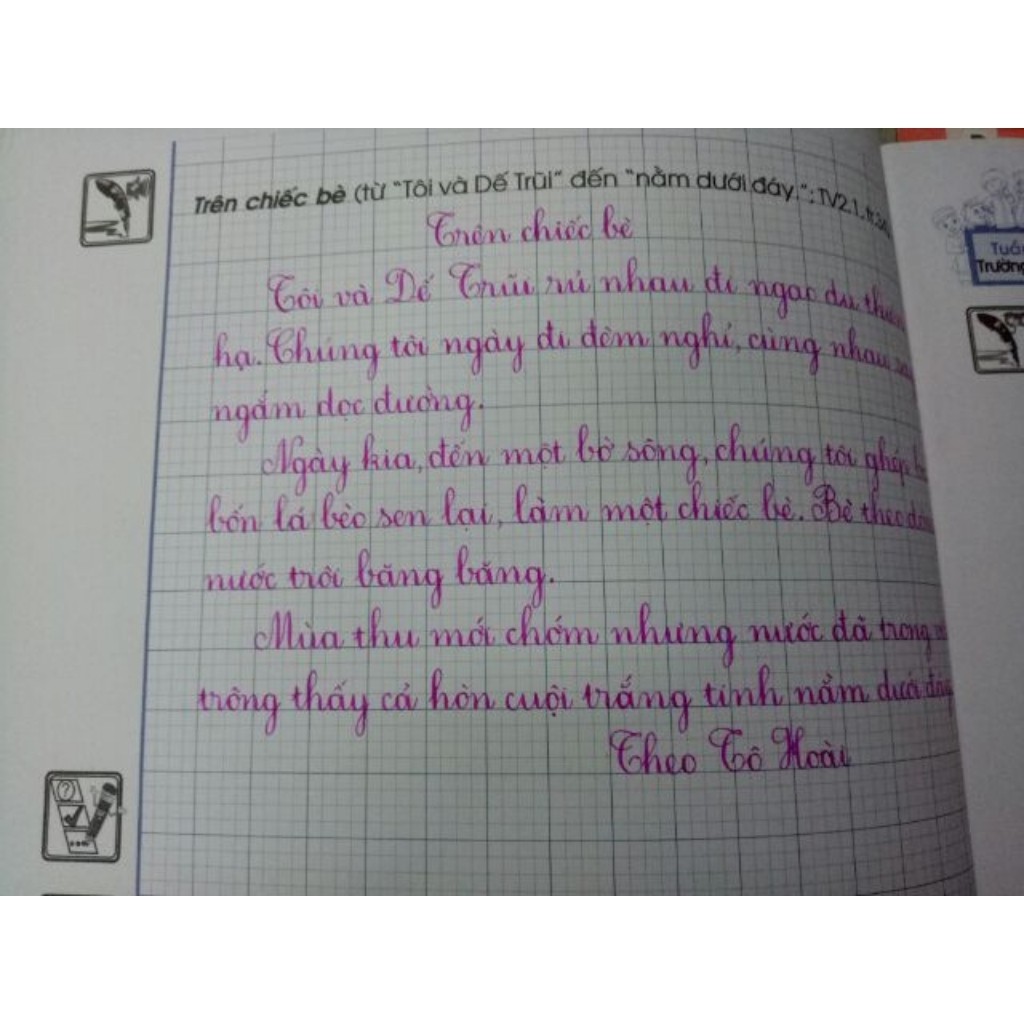 Trên chiếc bè (từ "Tôi và Dế Trũi" đến "nằm dưới đáy.": TV2.1, tr.34
Trên chiếc bè
Tôi và Dế Trũi rủ nhau đi ngao du
hạ. Chúng tôi ngày đi đêm nghỉ, cùng nhau
ngắm dọc đường.
Ngày kia, đến một bờ sông, chúng tôi ghép
bốn lá bèo sen lại, làm một chiếc bè. Bè theo
nước trôi băng băng.
Mùa thu mới chớm nhưng nước đã trong
trông thấy cả hòn cuội trắng tinh nằm dưới
Theo Tô Hoài
Trường